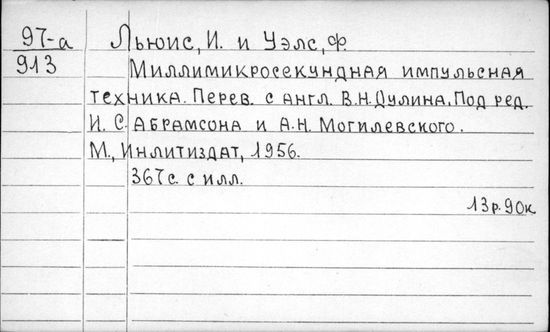 97-а Льюис, И. и Уэлс, Ф
913 Миллимикросекундная импульсная
техника. Перев. с англ. В.Н.Дулина. Под ред.
И. С. Абрамсона и А.Н. Могилевского.
М., Инлитиздат, 1956.
367с. с илл.
13р.90к